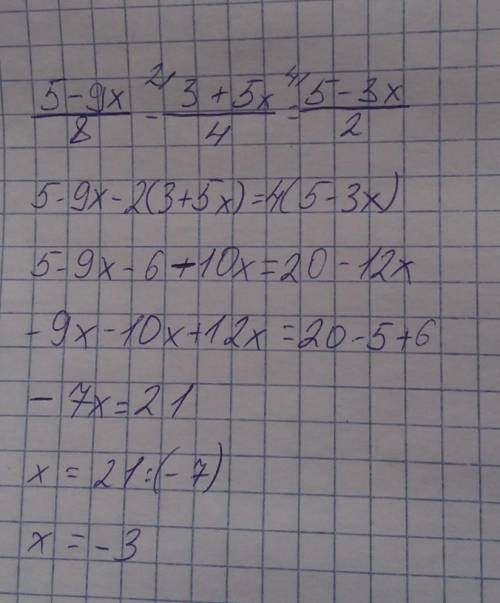 (5-9x)/8 - ²⁾(3+5x)/4 = ⁴⁾(5-3x)/2
5-9x-2(3+5x)=4(5-3x)
5-9x-6-10x=20-12x
-9x-10x+12x=20-5+6
-7x=21
x=21:(-7)
x=-3